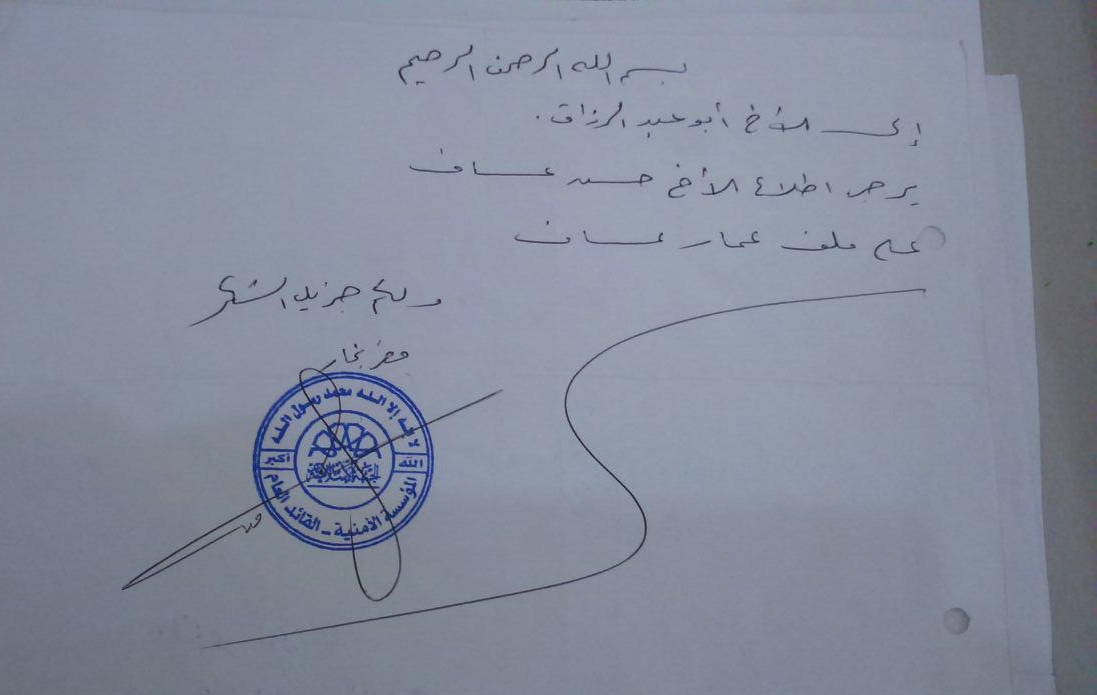 بسم الله الرحمن الرحيم
إلى الأخ أبو عبد الرزاق.
يرجى اطلاع الأخ حسن عساف
على ملف عمار عساف
ولكم جزيل الشكر
لا إله إلا الله محمد رسول الله
المؤسسة الأمنية - القائد العام